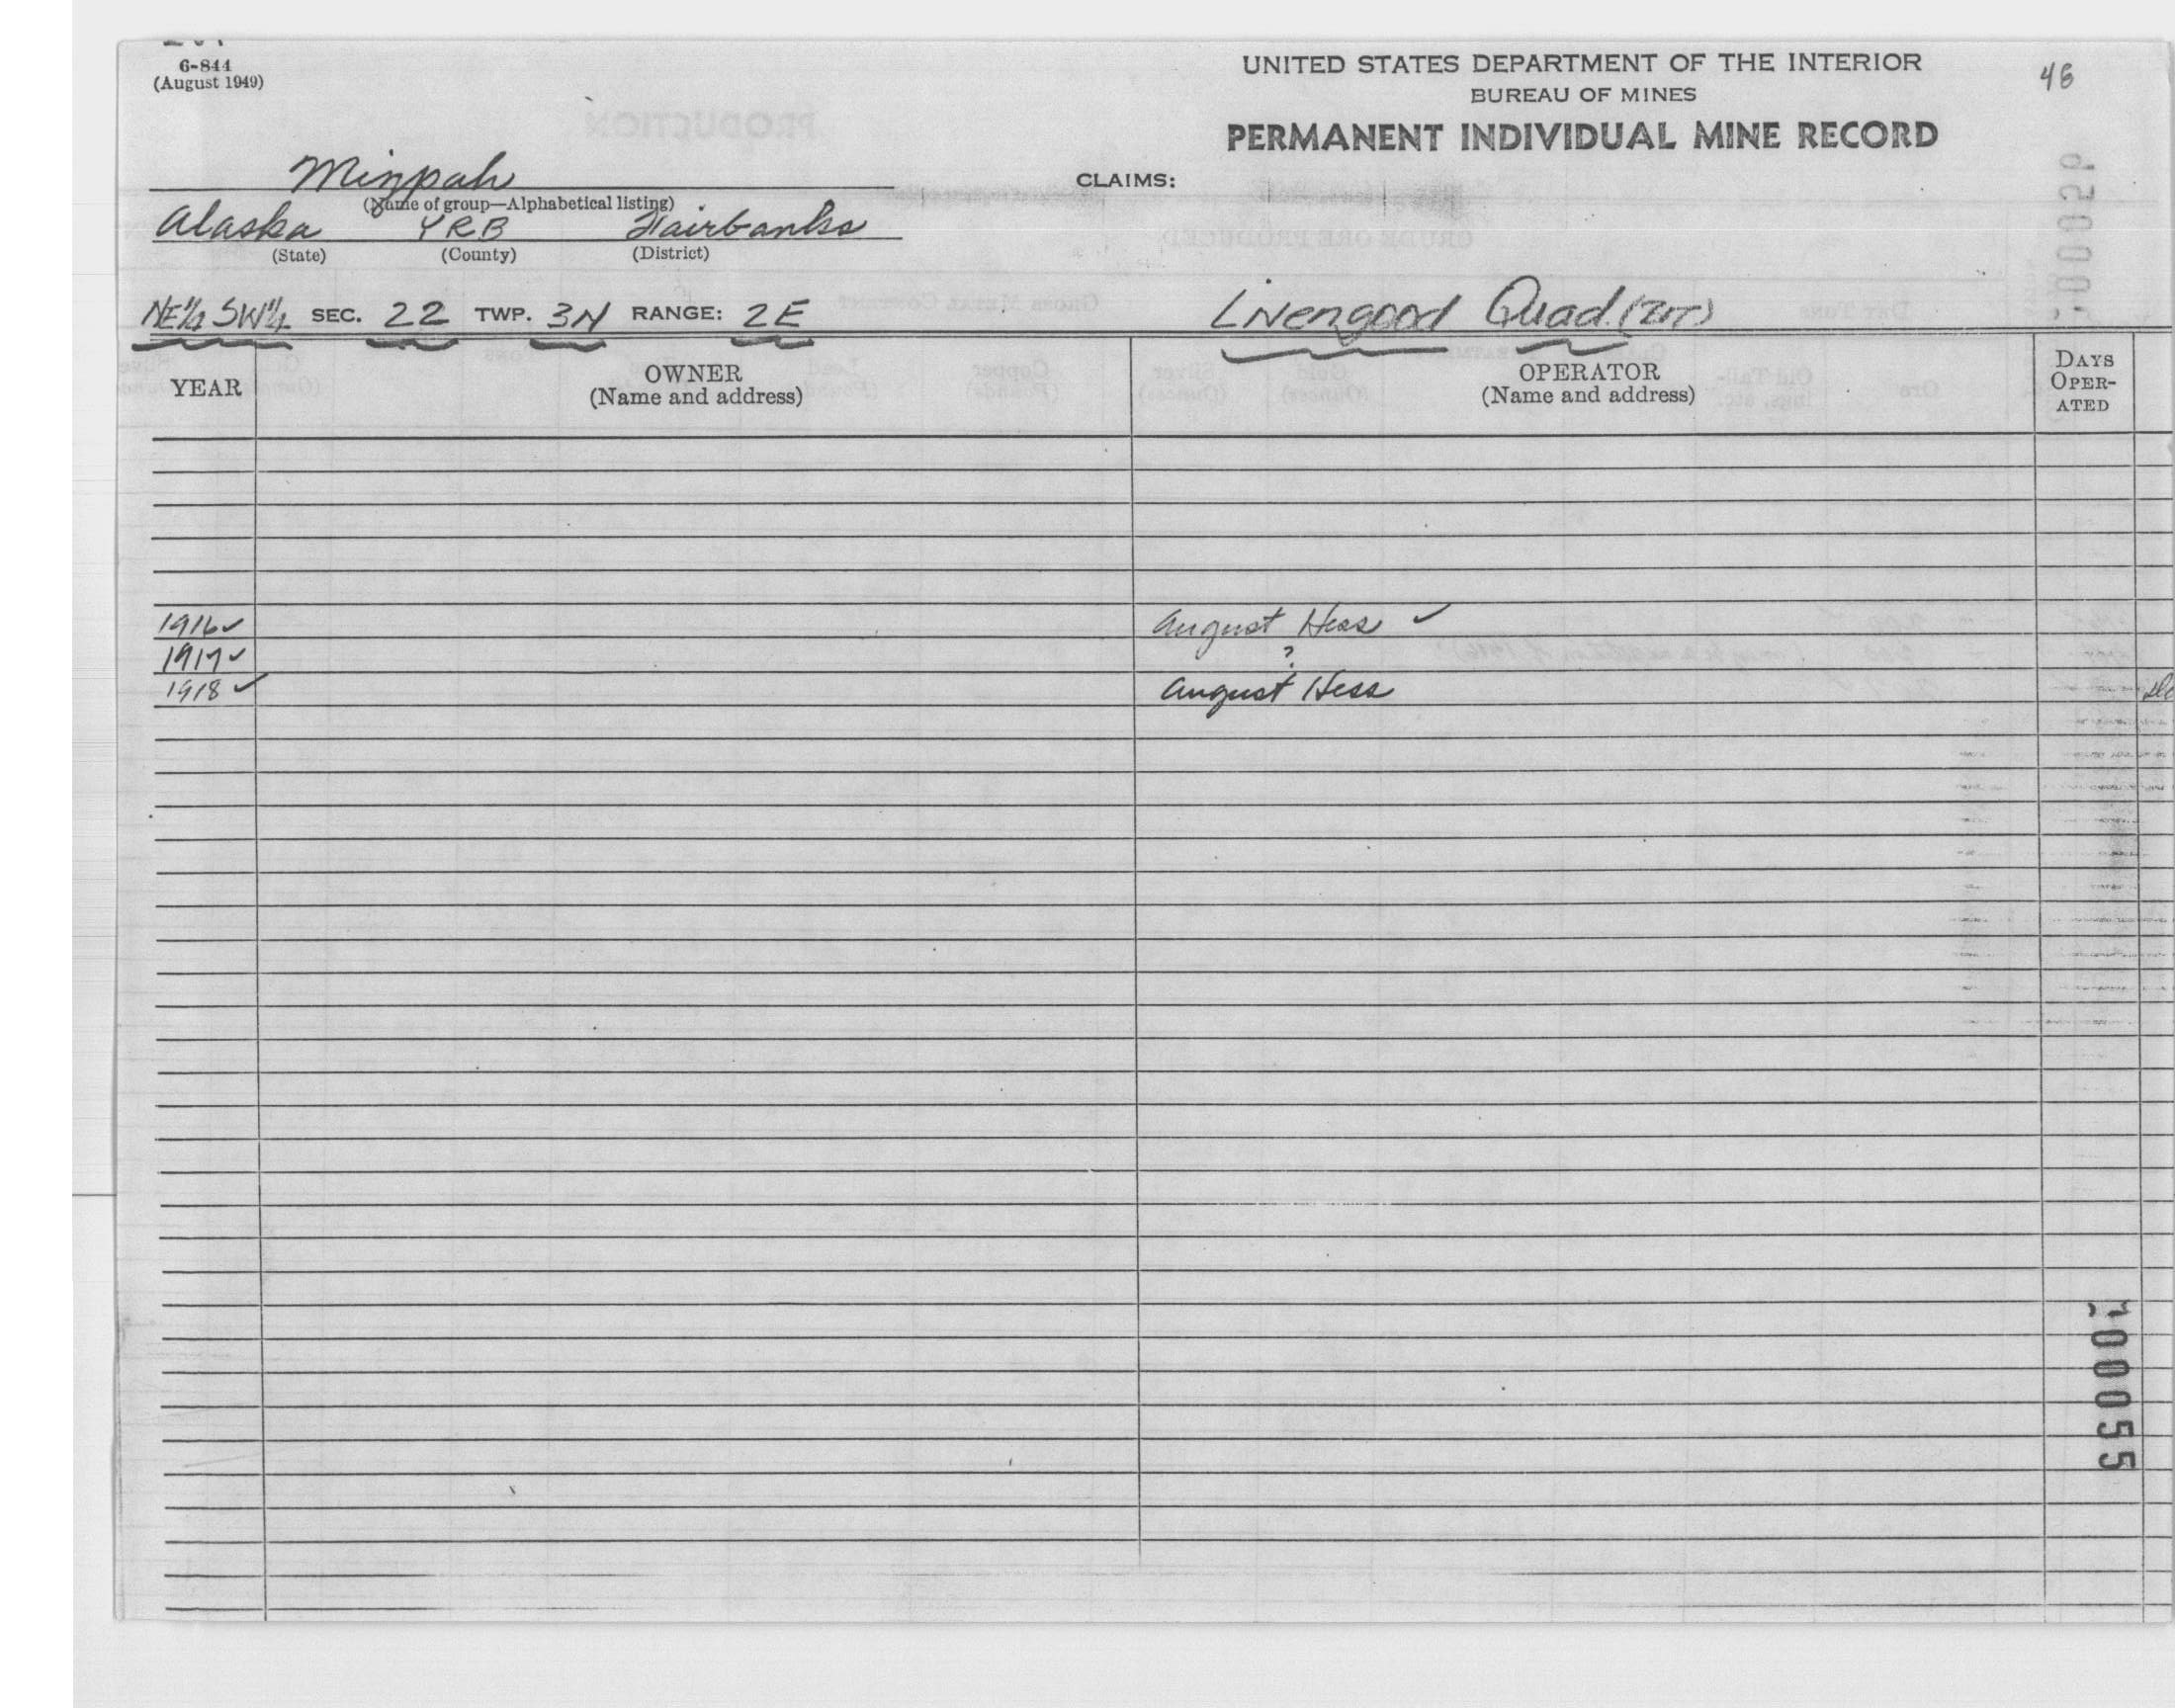 6-844
(August 1949)
UNITED STATES DEPARTMENT OF THE INTERIOR
BUREAU OF MINES
PERMANENT INDIVIDUAL MINE RECORD
48
Mizpah
(Name of group—Alphabetical listing)
CLAIMS:
Alaska YRB Fairbanks
(State) (County) (District)
NE¼ SW¼ SEC. 22 TWP. 3N RANGE: 2E Livengood Quad.
YEAR OWNER (Name and address) OPERATOR (Name and address) DAYS OPER-ATED
1916✓ August Hess ✓
1917✓ ?
1918✓ August Hess